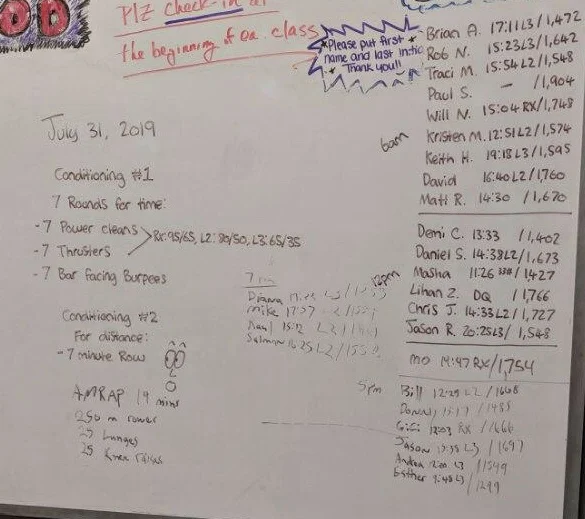 Plz check-in at
the beginning of ea. class
*Please put first
name and last initial
* Thank you!! *
July 31, 2019
Conditioning #1
7 Rounds for time:
- 7 Power cleans
- 7 Thrusters
Rx:95/65, L2: 80/50, L3:65/35
- 7 Bar Facing Burpees
Conditioning #2
For distance:
- 7 minute Row
AMRAP 19 mins
250 m rower
25 Lunges
25 Knee raises
6am
Brian A. 17:11L3/1,472
Rob N. 15:23L3/1,642
Traci M. 15:54L2/1,548
Paul S. - /1,904
Will N. 15:04RX/1,748
Kristen M. 12:51L2/1,574
Keith H. 19:18L3/1,595
David 16:40L2/1,760
Matt R. 14:30 /1,670
12pm
Demi C. 13:33 /1,402
Daniel S. 14:38L2/1,673
Masha 11:26 /1,427
Lihan Z. DQ /1,766
Chris J. 14:33L2/1,727
Jason R. 20:25L3/ 1,548
mo 14:47RX/1,754
5pm
Bill 12:29 L2 /1668
/1485
GiGi 12:03 RX /1666
Jason L3 /1697
Andrea L3 /1549
Esther L3 /1299
Mike
Salmon L2/